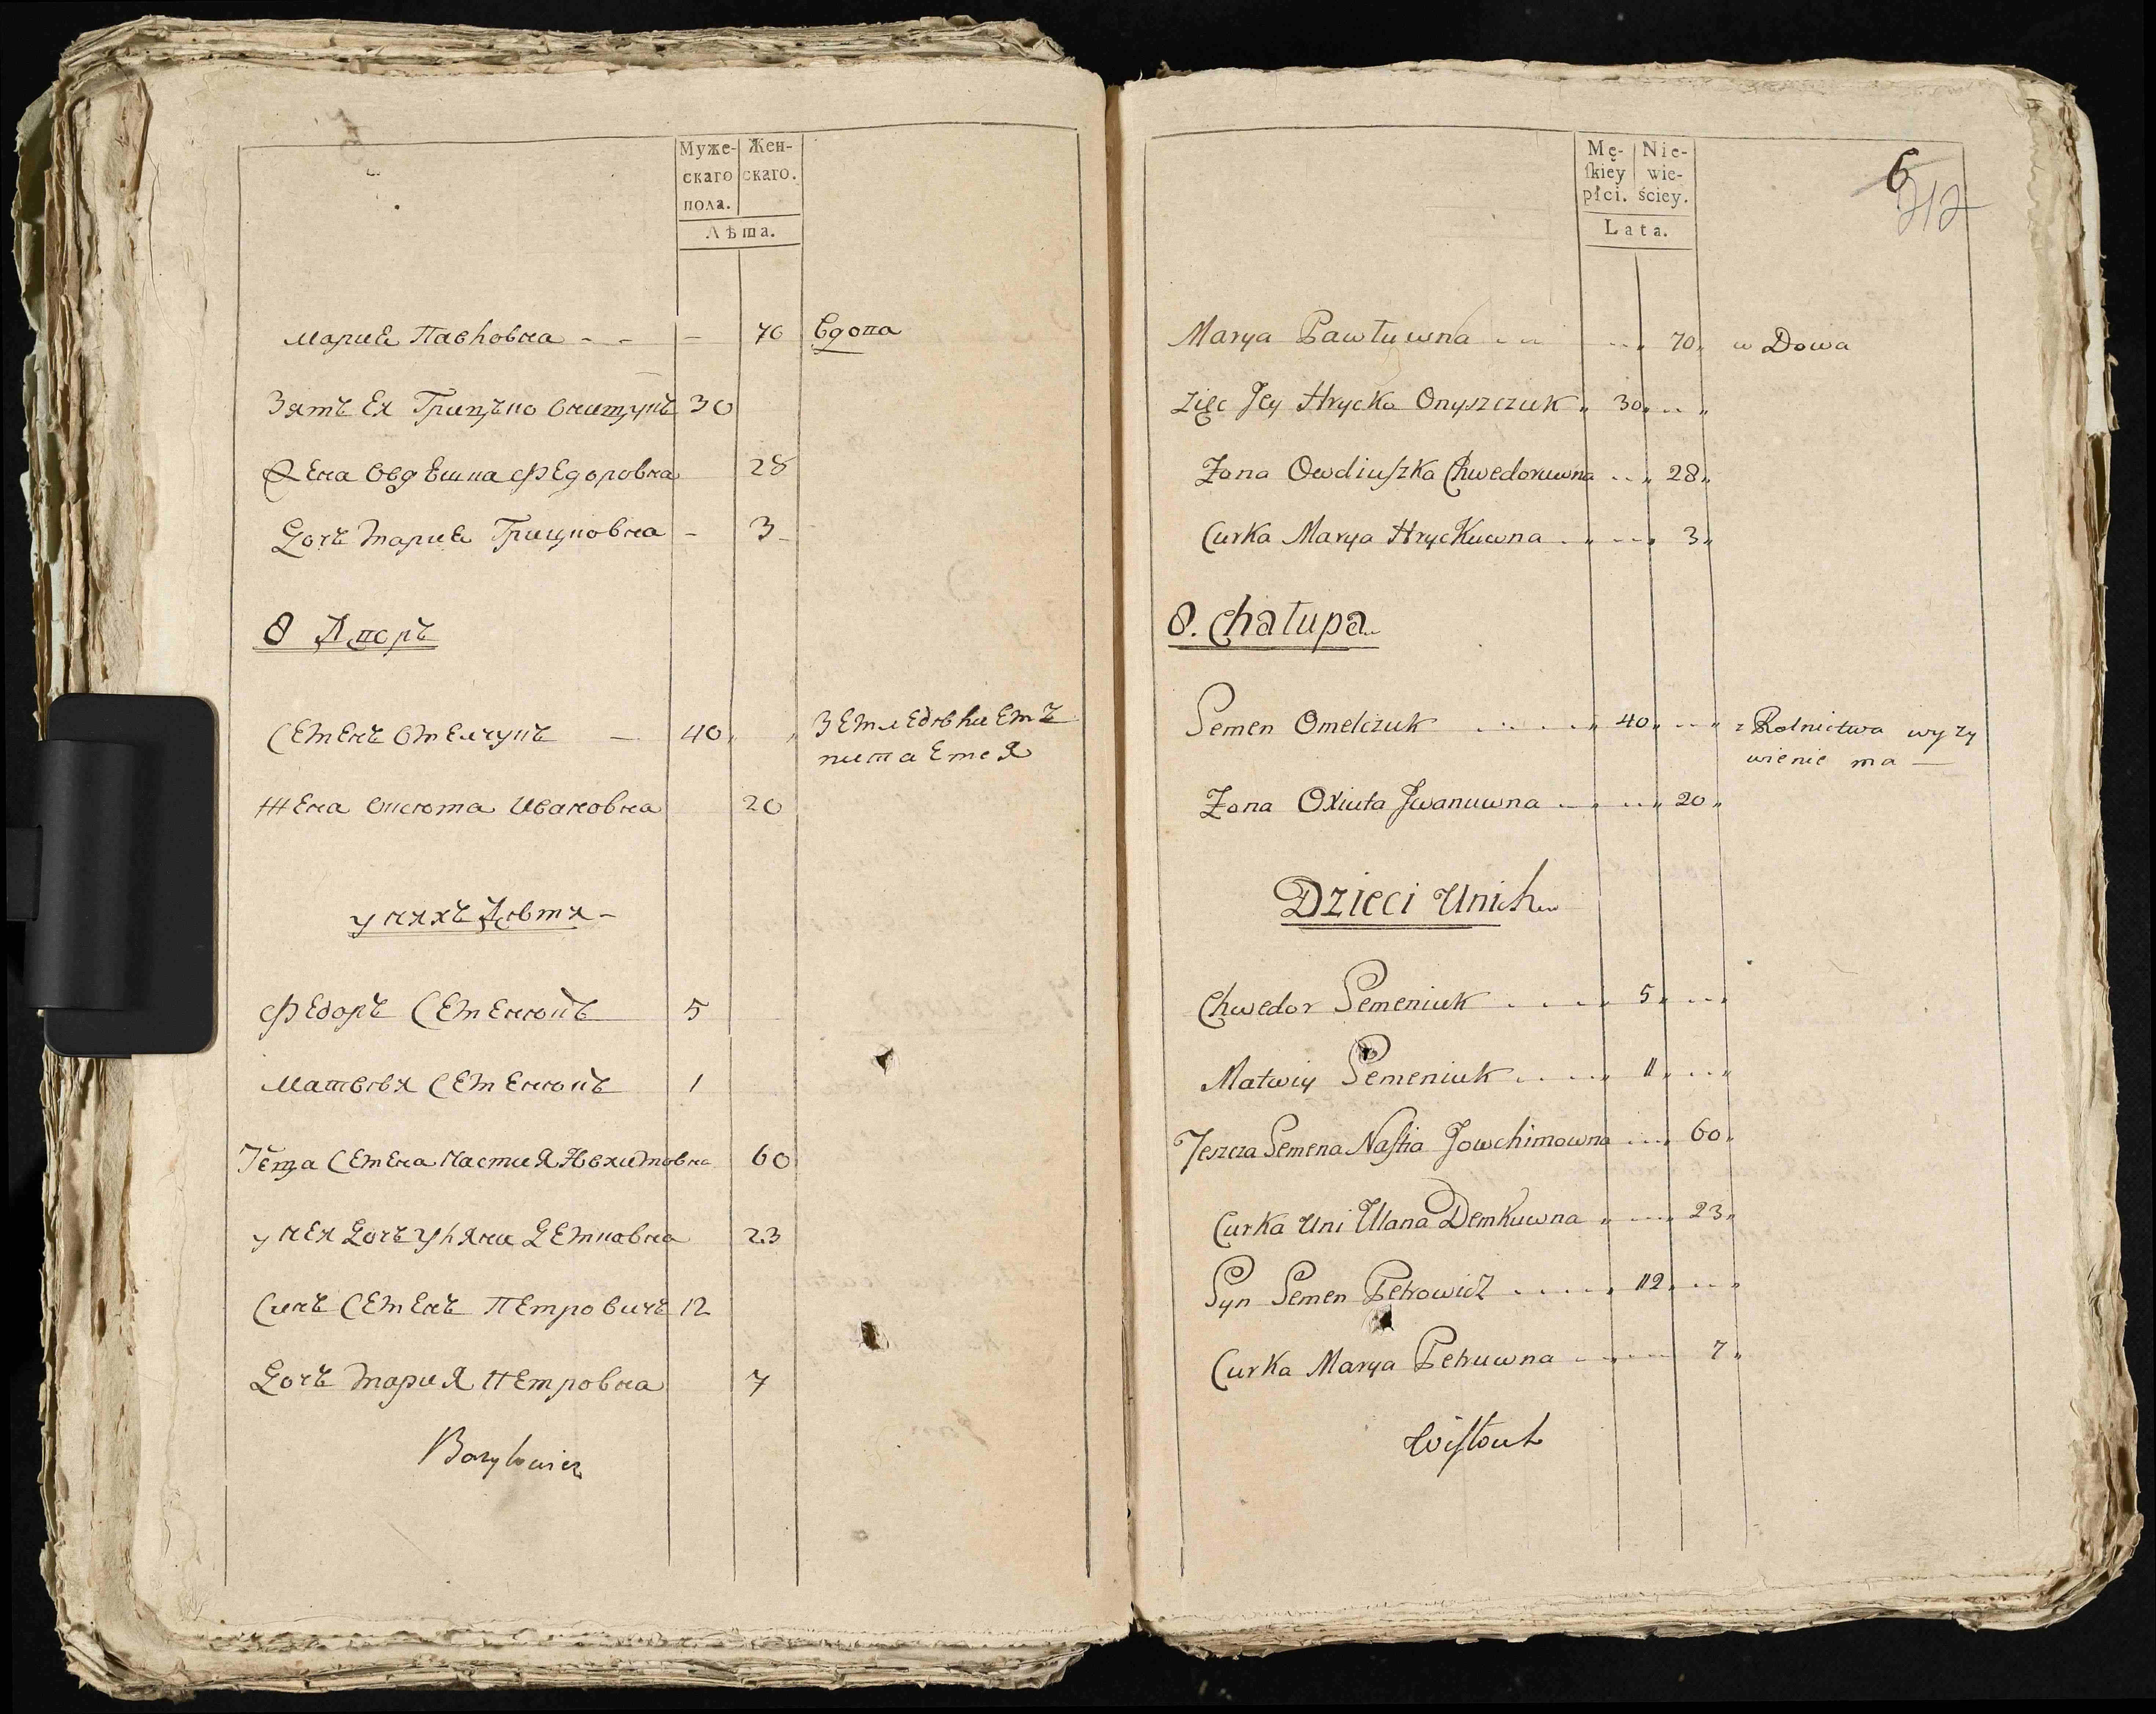 Муже-
скаго
пола.
Жен-
скаго.
Лѣта.
Мариа Павловна - - - 70 Вдова
Зять Ея Грицько Онищукъ 30
Жена Овдѣшка Федоровна 28
Дочь Мариа Грицковна - 3
8 Дворъ
Семенъ Омелчукъ — 40 Земледѣлиемъ
питаетсЯ
Жена Оксюта Ивановна 20
у нихъ Дѣти
Федоръ Семенюкъ 5
Матвѣй Семенюкъ 1
Тёща Семена НастиЯ 60
у неЯ Дочь УлЯна Демковна 23
Синъ Семенъ Петровичъ 12
Дочь МариЯ Петровна 7
Mę-
ſkiey
płci.
Nie-
wie-
ściey.
Lata.
6
212
Marya Pawłuwna 70 w Dowa
Zięc Jey Hrycko Onyszczuk 30
Zona Owdiuszka Chwedoruwna 28
Curka Marya Hryckuwna 3
8. Chałupa
Semen Omelczuk 40 z Rolnictwa wyzy
wienie ma —
Zona Oxiuta Jwanuwna 20
Dzieci Unich
Chwedor Semeniuk 5
Matwiy Semeniuk 1
Teszcza Semena Nastia Jowchimowna 60
Curka Uni Ulana Demkuwna 23
Syn Semen Petrowicz 12
Curka Marya Petruwna 7